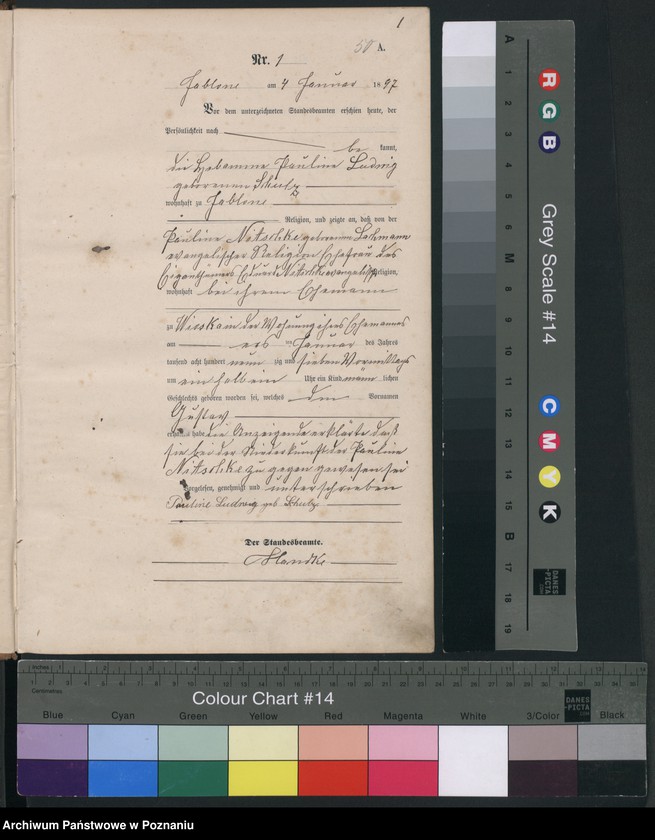 1
50 A.
Nr. 1
Jablone am 4 Januar 1897
Vor dem unterzeichneten Standesbeamten erschien heute, der
Persönlichkeit nach
be kannt,
die Hebamme Pauline Ludwig
geborenen Schulz
wohnhaft zu Jablone
Religion, und zeigte an, daß von der
Pauline Nitschke geborenen Lachmann
evangelischer Religion Ehefrau des
Eigenthümers Eduard Nitschke evangelisch Religion,
wohnhaft bei ihrem Ehemann
zu in der Wohnung ihres Ehemannes
am ten Januar des Jahres
tausend acht hundert neun zig und sieben Vormittags
um ein halb ein Uhr ein Kind männ lichen
Geschlechts geboren worden sei, welches den Vornamen
Gustav
erhalten habe die Anzeigende erklärte daß
sie bei der Niederkunft der Pauline
Nitschke zu gegen gewesen sei
Vorgelesen, genehmigt und unterschrieben
Pauline Ludwig geb Schulz
Der Standesbeamte.
Grey Scale #14
A 1 2 3 4 5 6 M 8 9 10 11 12 13 14 15 B 17 18 19
R G B
C M Y K
DANES-PICTA.COM
Inches
Centimetres
Colour Chart #14
DANES-PICTA.COM
Blue Cyan Green Yellow Red Magenta White 3/Color Black
Archiwum Państwowe w Poznaniu